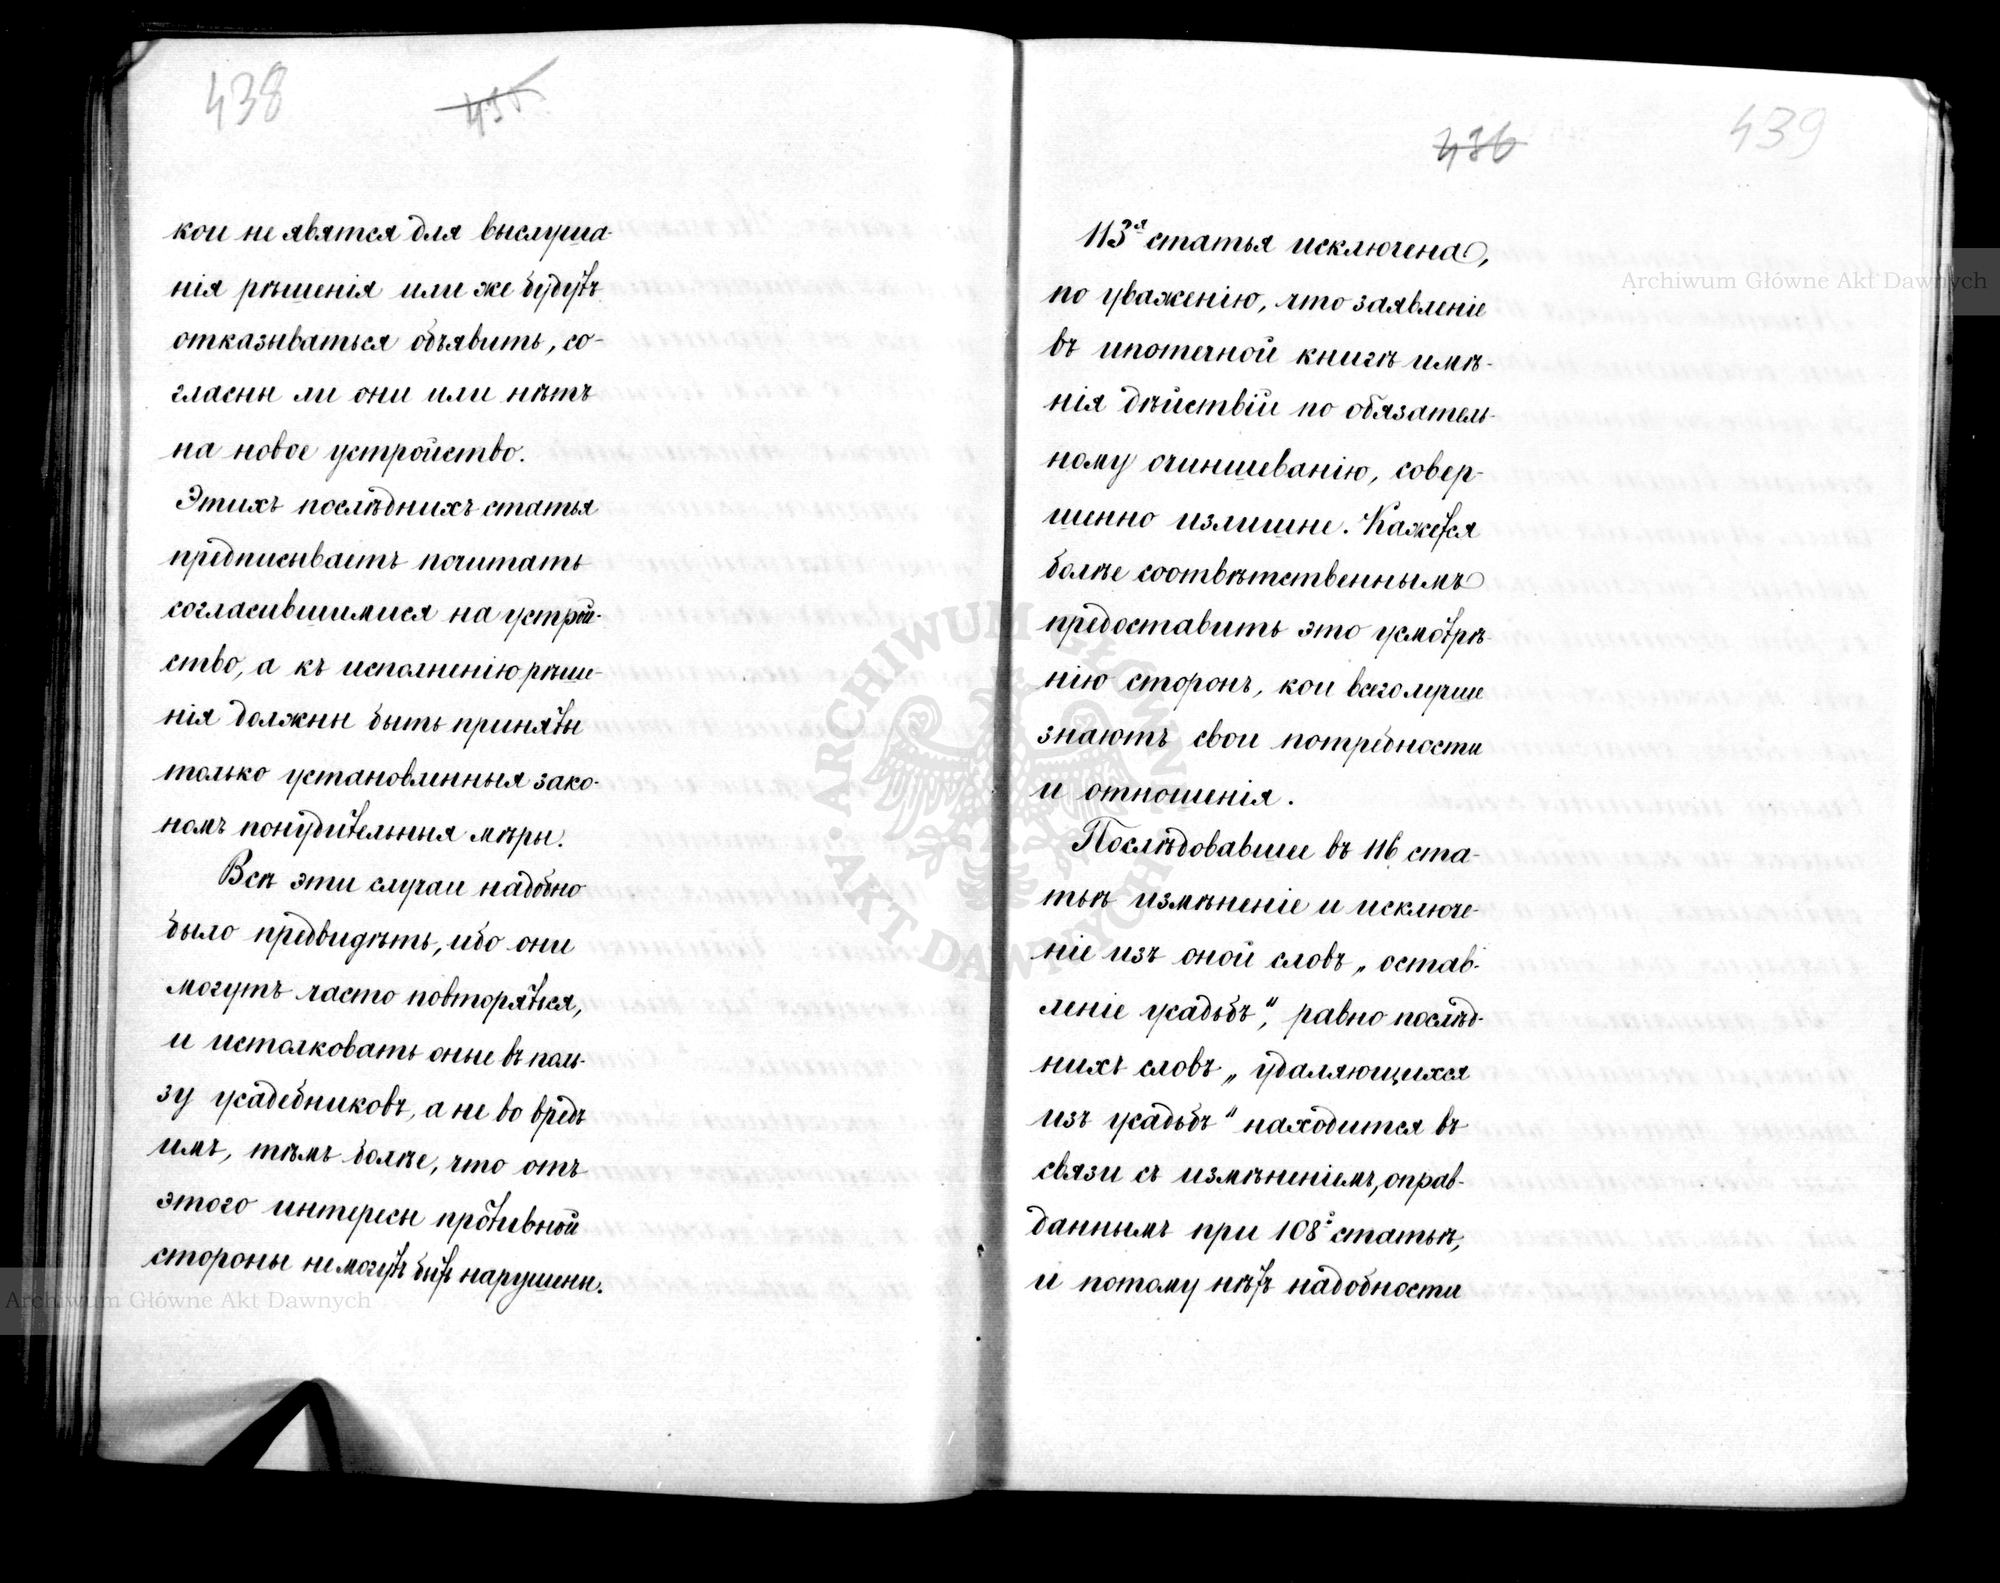 438
435
кои не явятся для выслуша-
нія рѣшенія или же будутъ
отказываться объявить, со-
гласны ли они или нѣтъ
на новое устройство.
Этихъ послѣднихъ статья
предписываетъ почитать
согласившимися на устрой-
ство, а къ исполненію рѣше-
нія должны быть приняты
только установленныя зако-
номъ понудительныя мѣры.
Всѣ эти случаи надобно
было предвидѣть, ибо они
могутъ часто повторяться,
и истолковать оные въ поль-
зу усадебниковъ, а не во вредъ
имъ, тѣмъ болѣе, что отъ
этого интересы противной
стороны не могутъ быть нарушены.
436
439
113я статья исключена,
по уваженію, что заявленіе
въ ипотечной книгѣ имѣ-
нія дѣйствій по обязатель-
ному очиншеванію, совер-
шенно излишне. Кажется
болѣе соотвѣтственнымъ
предоставить это усмотрѣ-
нію сторонъ, кои всего лучше
знаютъ свои потребности
и отношенія.
Послѣдовавшее въ 116 ста-
тьѣ измѣненіе и исключе-
ніе изъ оной словъ „остав-
леніе усадьбъ", равно послѣд-
нихъ словъ „удаляющихся
изъ усадьбъ" находится въ
связи съ измѣненіемъ, оправ-
даннымъ при 108й статьѣ,
и потому нѣтъ надобности
Archiwum Główne Akt Dawnych
Archiwum Główne Akt Dawnych
ARCHIWUM GŁÓWNE AKT DAWNYCH